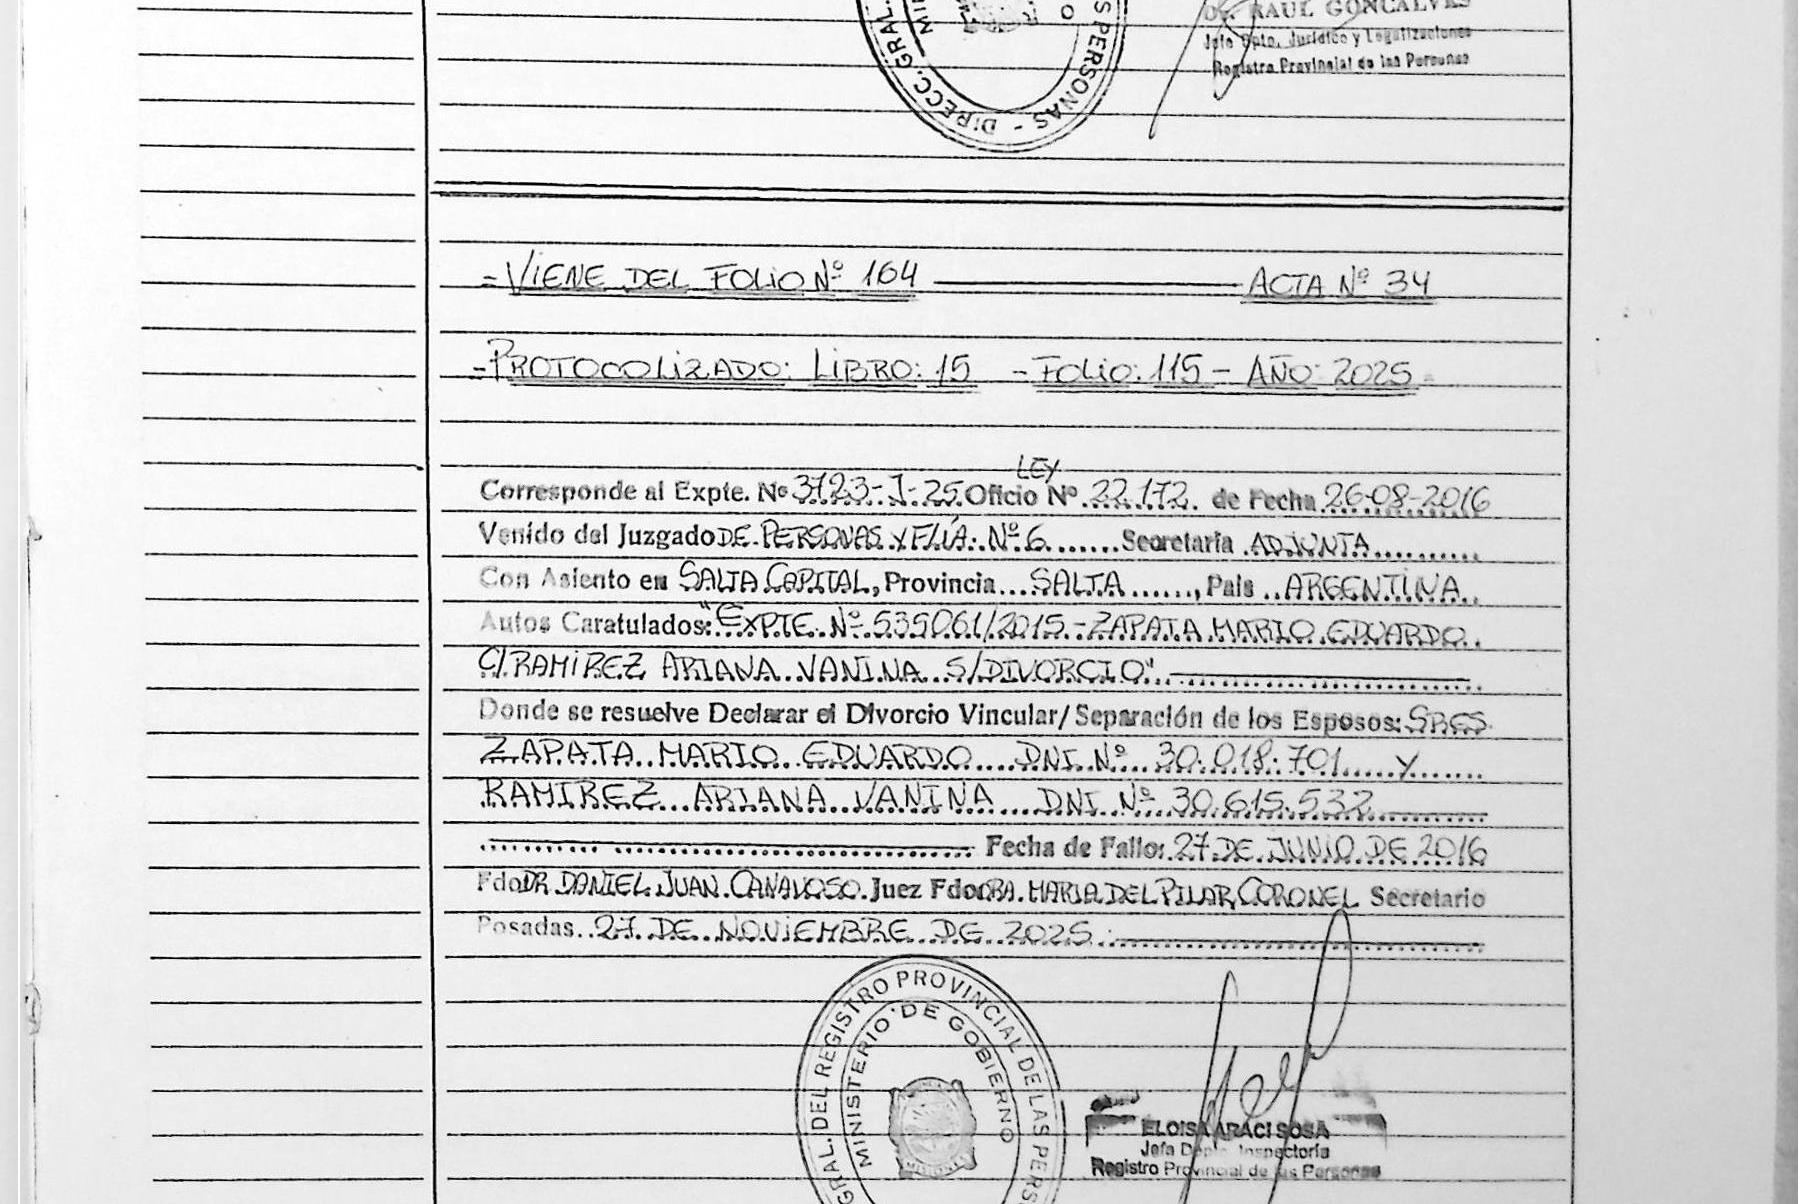 DR. RAUL GONCALVES
Jefe Dpto. Jurídico y Legalizaciones
Registro Provincial de las Personas
DIRECC. GRAL.
S PERSONAS -
= VIENE DEL FOLIO Nº 164 ACTA Nº 34
- PROTOCOLIZADO: LIBRO: 15 - FOLIO: 115 - AÑO: 2025
LEY
Corresponde al Expte. Nº 3723-J-25 Oficio Nº 22.172. de Fecha 26-08-2016
Venido del Juzgado DE PERSONAS Y FLIA. Nº 6 Secretaría ADJUNTA
Con Asiento en SALTA CAPITAL, Provincia SALTA, País ARGENTINA
Autos Caratulados: "EXPTE. Nº 535061/2015 - ZAPATA MARIO EDUARDO
C/ RAMIREZ ARIANA VANINA S/ DIVORCIO"
Donde se resuelve Declarar el Divorcio Vincular/ Separación de los Esposos: SRES
ZAPATA MARIO EDUARDO DNI Nº 30.018.701 Y
RAMIREZ ARIANA VANINA DNI Nº 30.615.532
Fecha de Fallo: 27 DE JUNIO DE 2016
Fdo DR. DANIEL JUAN CANAVOSO. Juez Fdo DRA. MARIA DEL PILAR CORONEL Secretario
Posadas 27 DE NOVIEMBRE DE 2025
GRAL. DEL REGISTRO PROVINCIAL DE LAS PERS
MINISTERIO DE GOBIERNO
MISIONES
ELOISA ARACI SOSA
Jefa Dpto. Inspectoría
Registro Provincial de las Personas